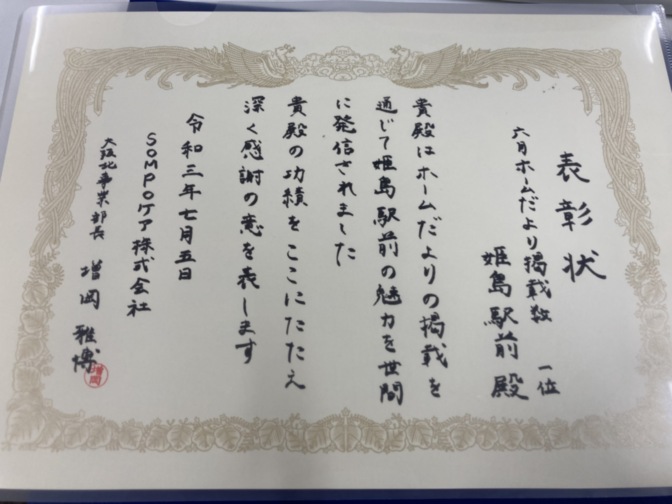 表彰状
六月ホームだより掲載数 一位
姫島駅前 殿
貴殿はホームだよりの掲載を
通じて姫島駅前の魅力を世間
に発信されました
貴殿の功績をここにたたえ
深く感謝の意を表します
令和三年七月五日
SOMPOケア株式会社
大阪北事業部長 増岡 雅博
増岡